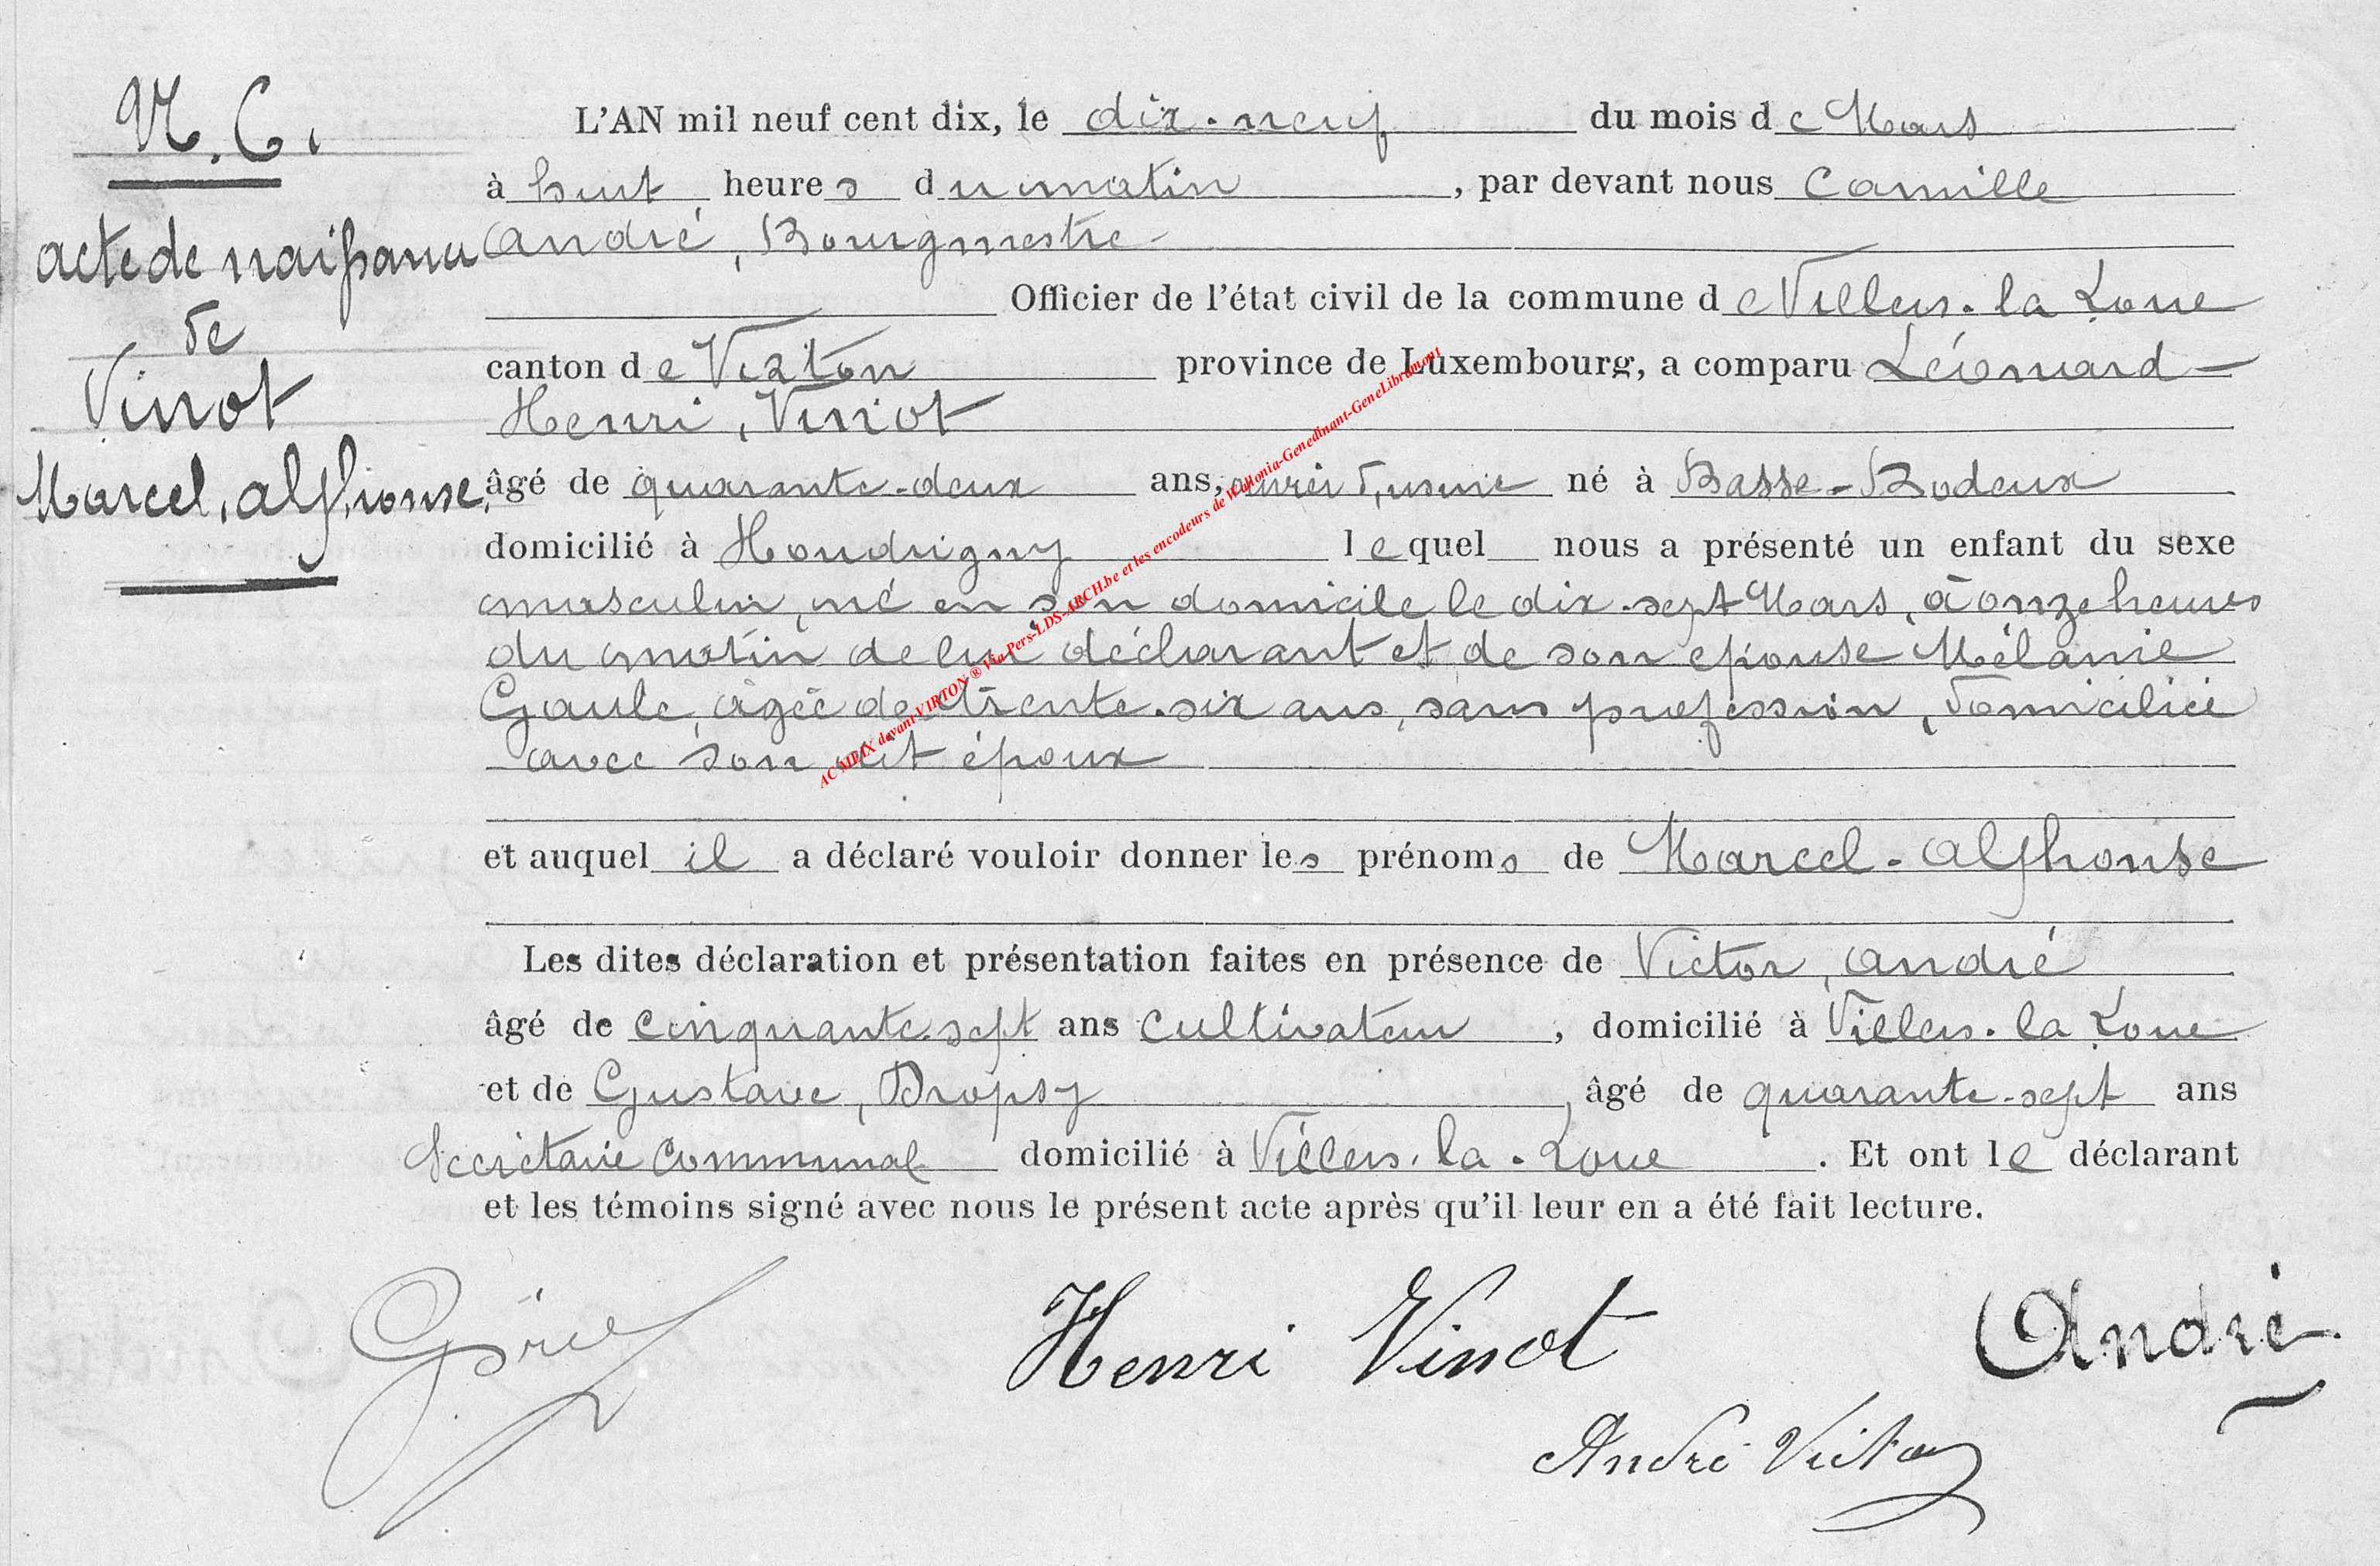 N. 6.
acte de naissance
de
Vinot
Marcel, Alphonse.
L'AN mil neuf cent dix, le dix-neuf du mois de Mars
à huit heures du matin, par devant nous Camille
André, Bourgmestre
Officier de l'état civil de la commune de Villers-la-Loue
canton de Virton province de Luxembourg, a comparu Léonard-
Henri, Vinot
âgé de quarante-deux ans, ouvrier d'usine né à Basse-Bodeux
domicilié à Houdrigny lequel nous a présenté un enfant du sexe
masculin, né en son domicile le dix-sept Mars, à onze heures
du matin de lui déclarant et de son épouse Mélanie
Gaule, âgée de trente-six ans, sans profession, domiciliée
avec son dit époux
et auquel il a déclaré vouloir donner les prénoms de Marcel-Alphonse
Les dites déclaration et présentation faites en présence de Victor, André
âgé de cinquante-sept ans cultivateur, domicilié à Villers-la-Loue
et de Gustave, Dropsy, âgé de quarante-sept ans
Secrétaire communal domicilié à Villers-la-Loue. Et ont le déclarant
et les témoins signé avec nous le présent acte après qu'il leur en a été fait lecture.
Henri Vinot
André
André Victor
AC MEIX devant VIRTON ® Via Pers-LDS-ARCH.be et les encodeurs de Wallonia-Genedinant-GeneLibramont